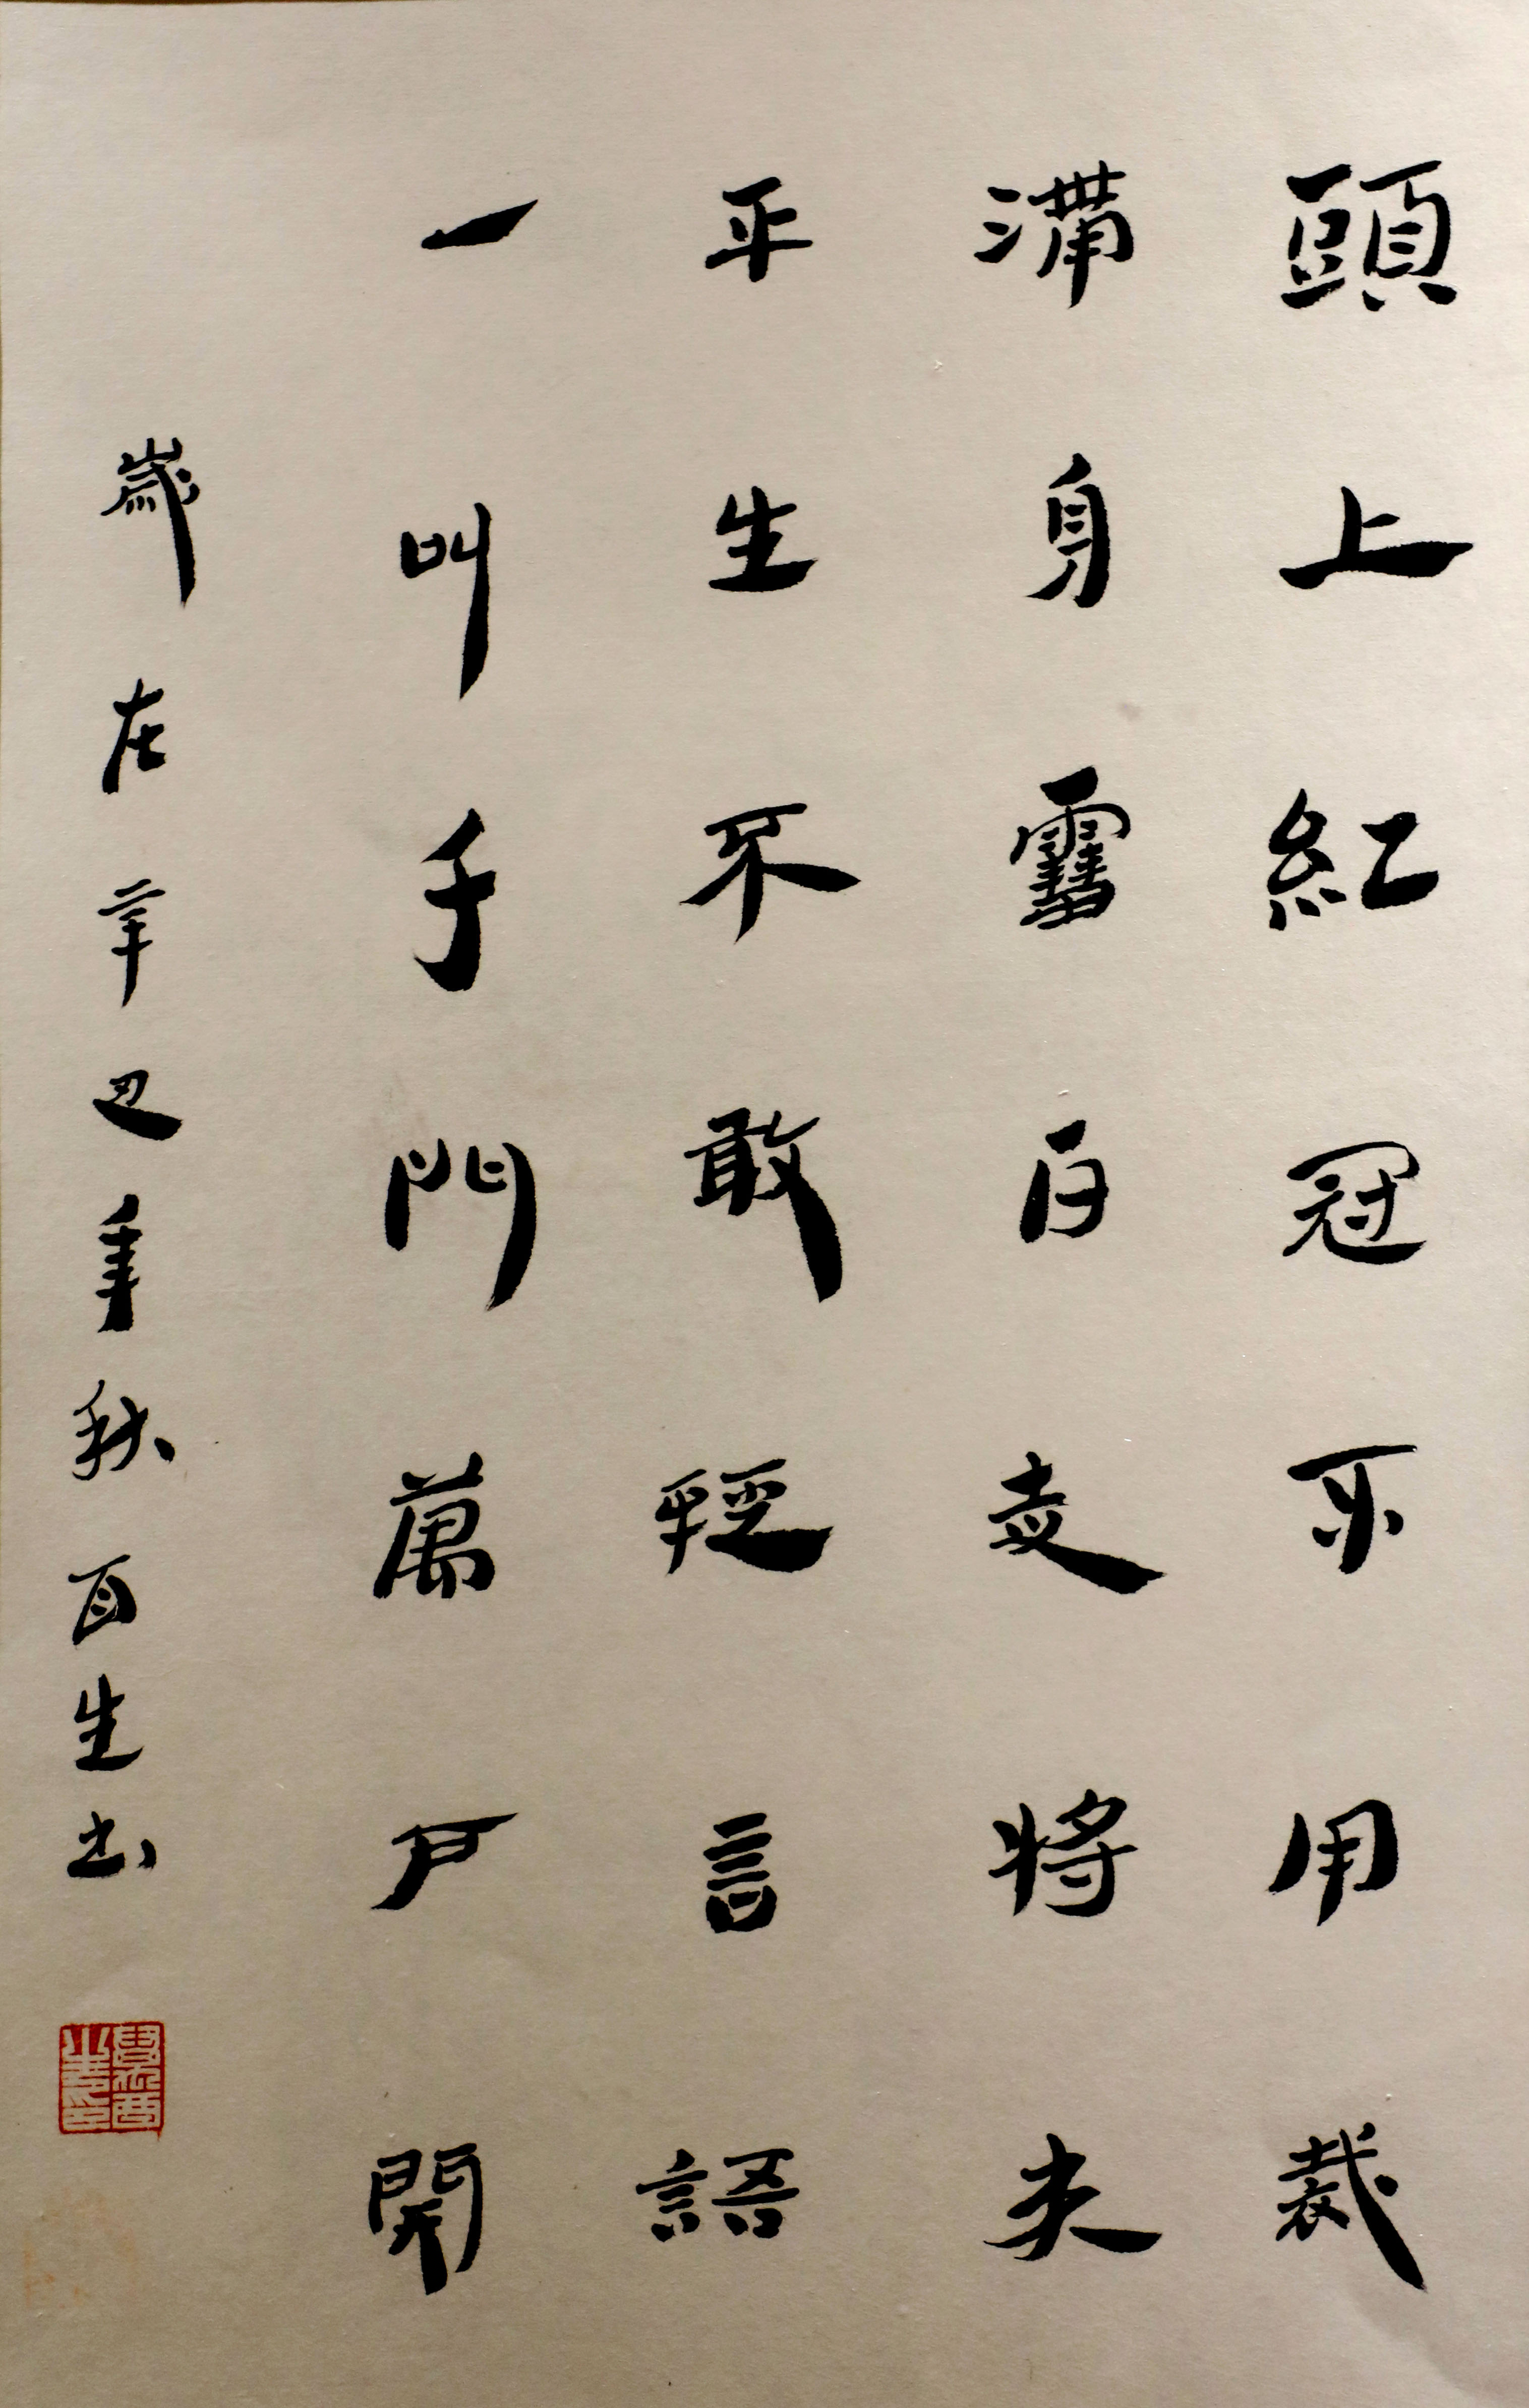 頭上紅冠不用裁
滿身雪白走将来
平生不敢輕言語
一叫千門萬戶開
歲在辛丑年秋百生书